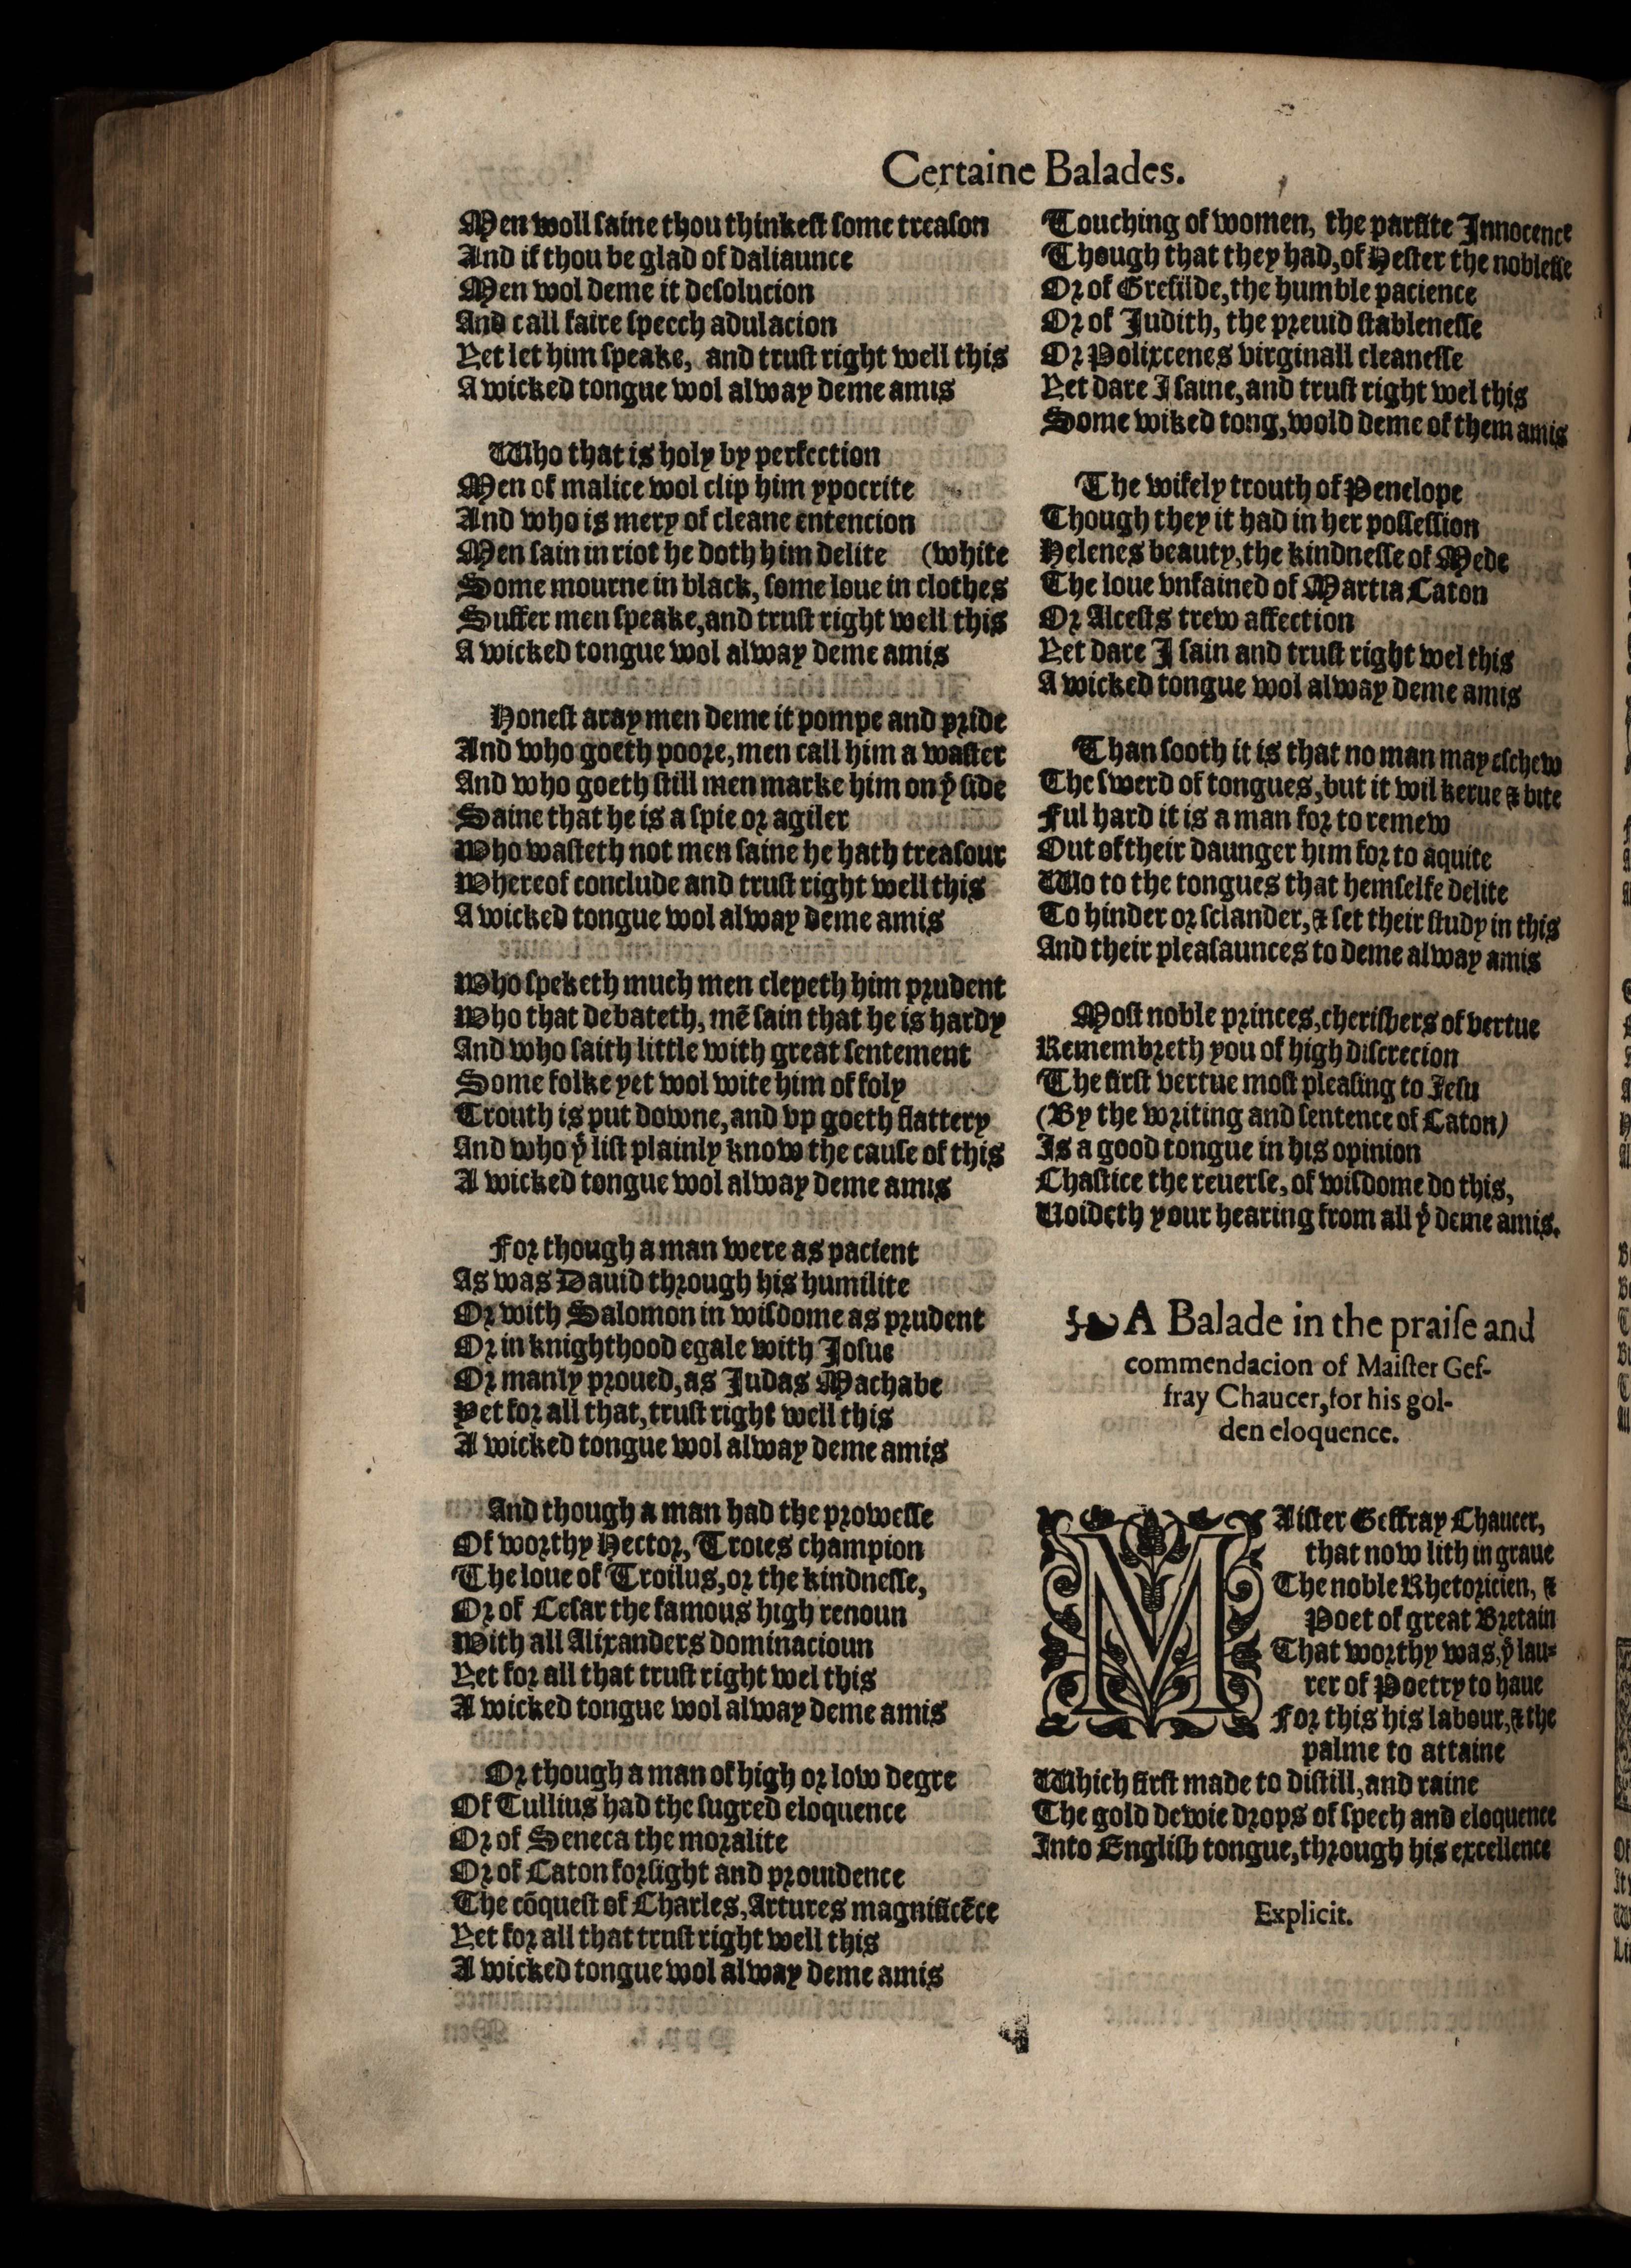 Certaine Balades.
Men woll saine thou thinkest some treason
And if thou be glad of daliaunce
Men wol deme it desolucion
And call faire speech adulacion
Yet let him speake, and trust right well this
A wicked tongue wol alway deme amis
Who that is holy by perfection
Men of malice wol clip him ypocrite
And who is mery of cleane entencion
Men sain in riot he doth him delite (white
Some mourne in black, some loue in clothes
Suffer men speake, and trust right well this
A wicked tongue wol alway deme amis
Honest aray men deme it pompe and pride
And who goeth poore, men call him a waster
And who goeth still men marke him on yͤ side
Saine that he is a spie or agiler
Who wasteth not men saine he hath treasour
Whereof conclude and trust right well this
A wicked tongue wol alway deme amis
Who speketh much men clepeth him prudent
Who that debateth, mē sain that he is hardy
And who saith little with great sentement
Some folke yet wol wite him of foly
Trouth is put downe, and vp goeth flattery
And who yͭ list plainly know the cause of this
A wicked tongue wol alway deme amis
For though a man were as pacient
As was Dauid through his humilite
Or with Salomon in wisdome as prudent
Or in knighthood egale with Josue
Or manly proued, as Judas Machabe
Yet for all that, trust right well this
A wicked tongue wol alway deme amis
And though a man had the prowesse
Of worthy Hector, Troies champion
The loue of Troilus, or the kindnesse,
Or of Cesar the famous high renoun
With all Alixanders dominacioun
Yet for all that trust right wel this
A wicked tongue wol alway deme amis
Or though a man of high or low degre
Of Tullius had the sugred eloquence
Or of Seneca the moralite
Or of Caton forsight and prouidence
The cōquest of Charles, Artures magnificēce
Yet for all that trust right well this
A wicked tongue wol alway deme amis
Touching of women, the parfite Innocence
Though that they had, of Hester the noblesse
Or of Gresilde, the humble pacience
Or of Judith, the preuid stablenesse
Or Polixcenes virginall cleanesse
Yet dare I saine, and trust right wel this
Some wiked tong, wold deme of them amis
The wifely trouth of Penelope
Though they it had in her possession
Helenes beauty, the kindnesse of Mede
The loue vnfained of Martia Caton
Or Alcests trew affection
Yet dare I sain and trust right wel this
A wicked tongue wol alway deme amis
Than sooth it is that no man may eschew
The swerd of tongues, but it wil kerue & bite
Ful hard it is a man for to remew
Out of their daunger him for to aquite
Wo to the tongues that hemselfe delite
To hinder or sclander, & set their study in this
And their pleasaunces to deme alway amis
Most noble princes, cherishers of vertue
Remembreth you of high discrecion
The first vertue most pleasing to Iesu
(By the writing and sentence of Caton)
Is a good tongue in his opinion
Chastice the reuerse, of wisdome do this,
Voideth your hearing from all yͭ deme amis.
A Balade in the praise and
commendacion of Maister Gef-
fray Chaucer, for his gol-
den eloquence.
MAister Geffray Chaucer,
that now lith in graue
The noble Rhetoricien, &
Poet of great Bretain
That worthy was, yͤ lau-
rer of Poetry to haue
For this his labour, & the
palme to attaine
Which first made to distill, and raine
The gold dewie drops of spech and eloquence
Into English tongue, through his excellence
Explicit.